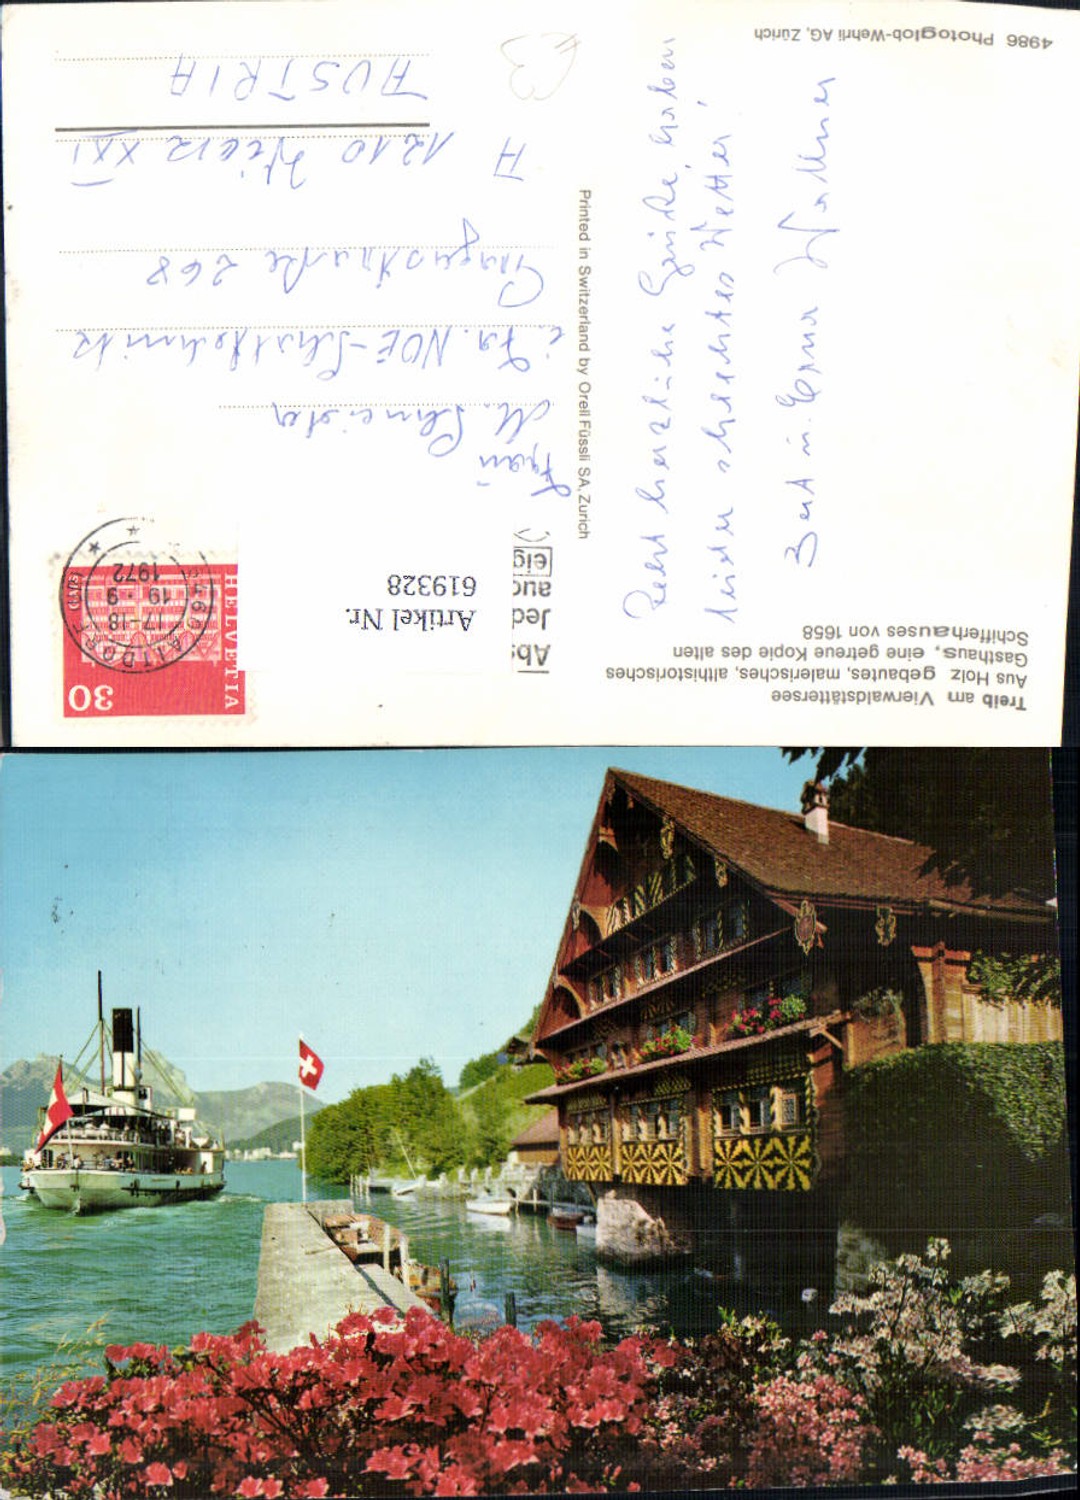 Treib am Vierwaldstättersee
Aus Holz gebautes, malerisches, althistorisches
Gasthaus, eine getreue Kopie des alten
Schifferhauses von 1658
Recht herzliche Grüße, haben
leider schlechtes Wetter!
Printed in Switzerland by Orell Füssli SA, Zurich
4986 Photoglob-Wehrli AG, Zürich
HELVETIA
30
6460 ALTDORF
17-18
19.-9
1972
Abs
Jed
auc
eig
Artikel Nr.
619328
Frau
M. Schneider
268
A 1210 Wien XXI
AUSTRIA